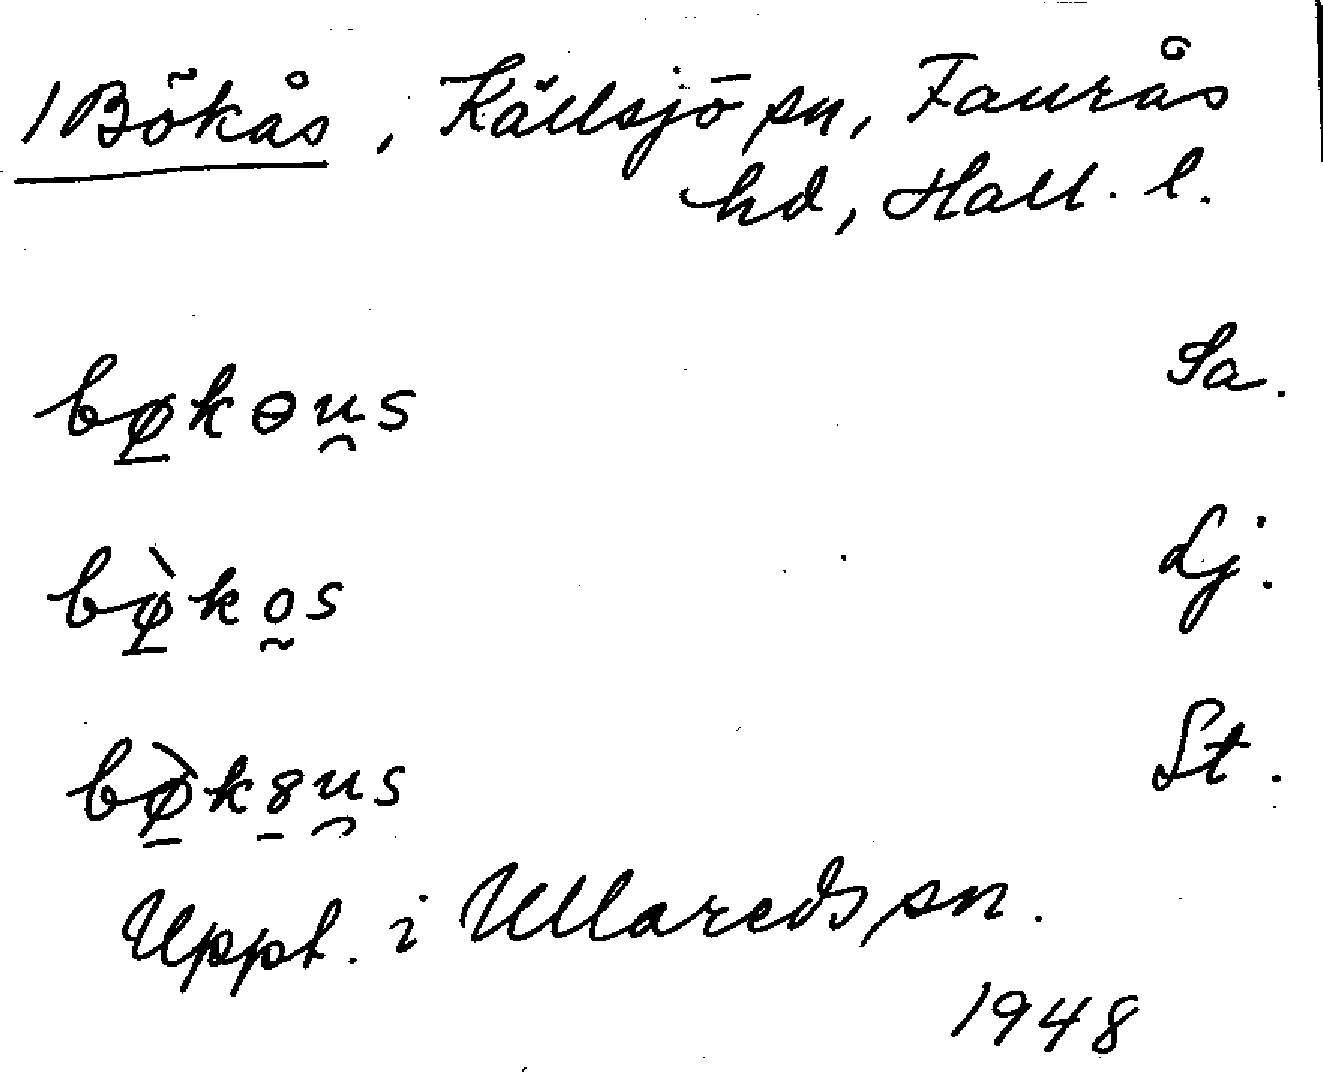 1 Bökås, Källsjö sn, Faurås
hd, Hall. l.
bø̱kɵu̯s Sa.
bø̱̀ko̰s Lj.
bø̱̀k8̱u̯s St.
Uppt. i Ullareds sn.
1948